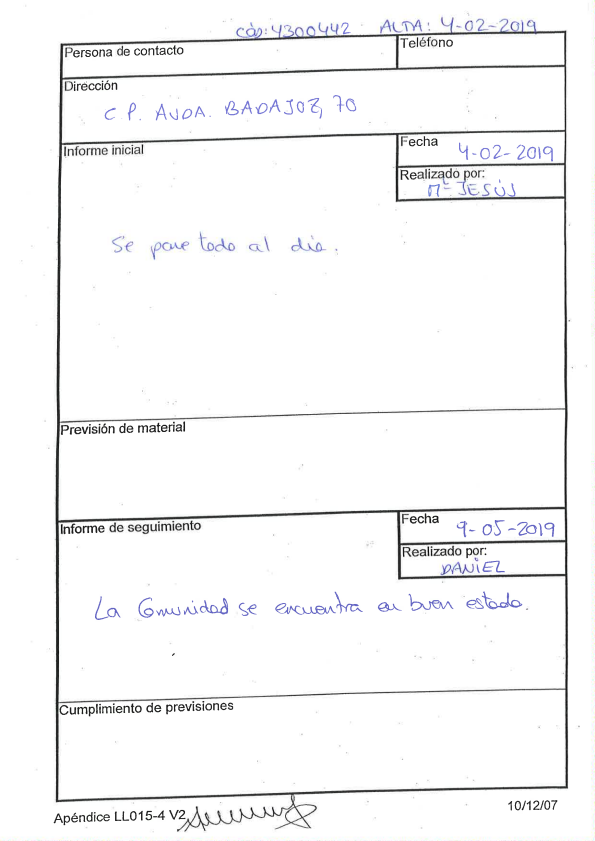 CÓD: 4300442 ALTA: 4-02-2019
Persona de contacto
Teléfono
Dirección
C P. AVDA. BADAJOZ, 70
Informe inicial
Fecha
4-02-2019
Realizado por:
Mª JESÚS
Se pone todo al día.
Previsión de material
Informe de seguimiento
Fecha
9-05-2019
Realizado por:
DANIEL
La Comunidad se encuentra en buen estado.
Cumplimiento de previsiones
Apéndice LL015-4 V2
10/12/07